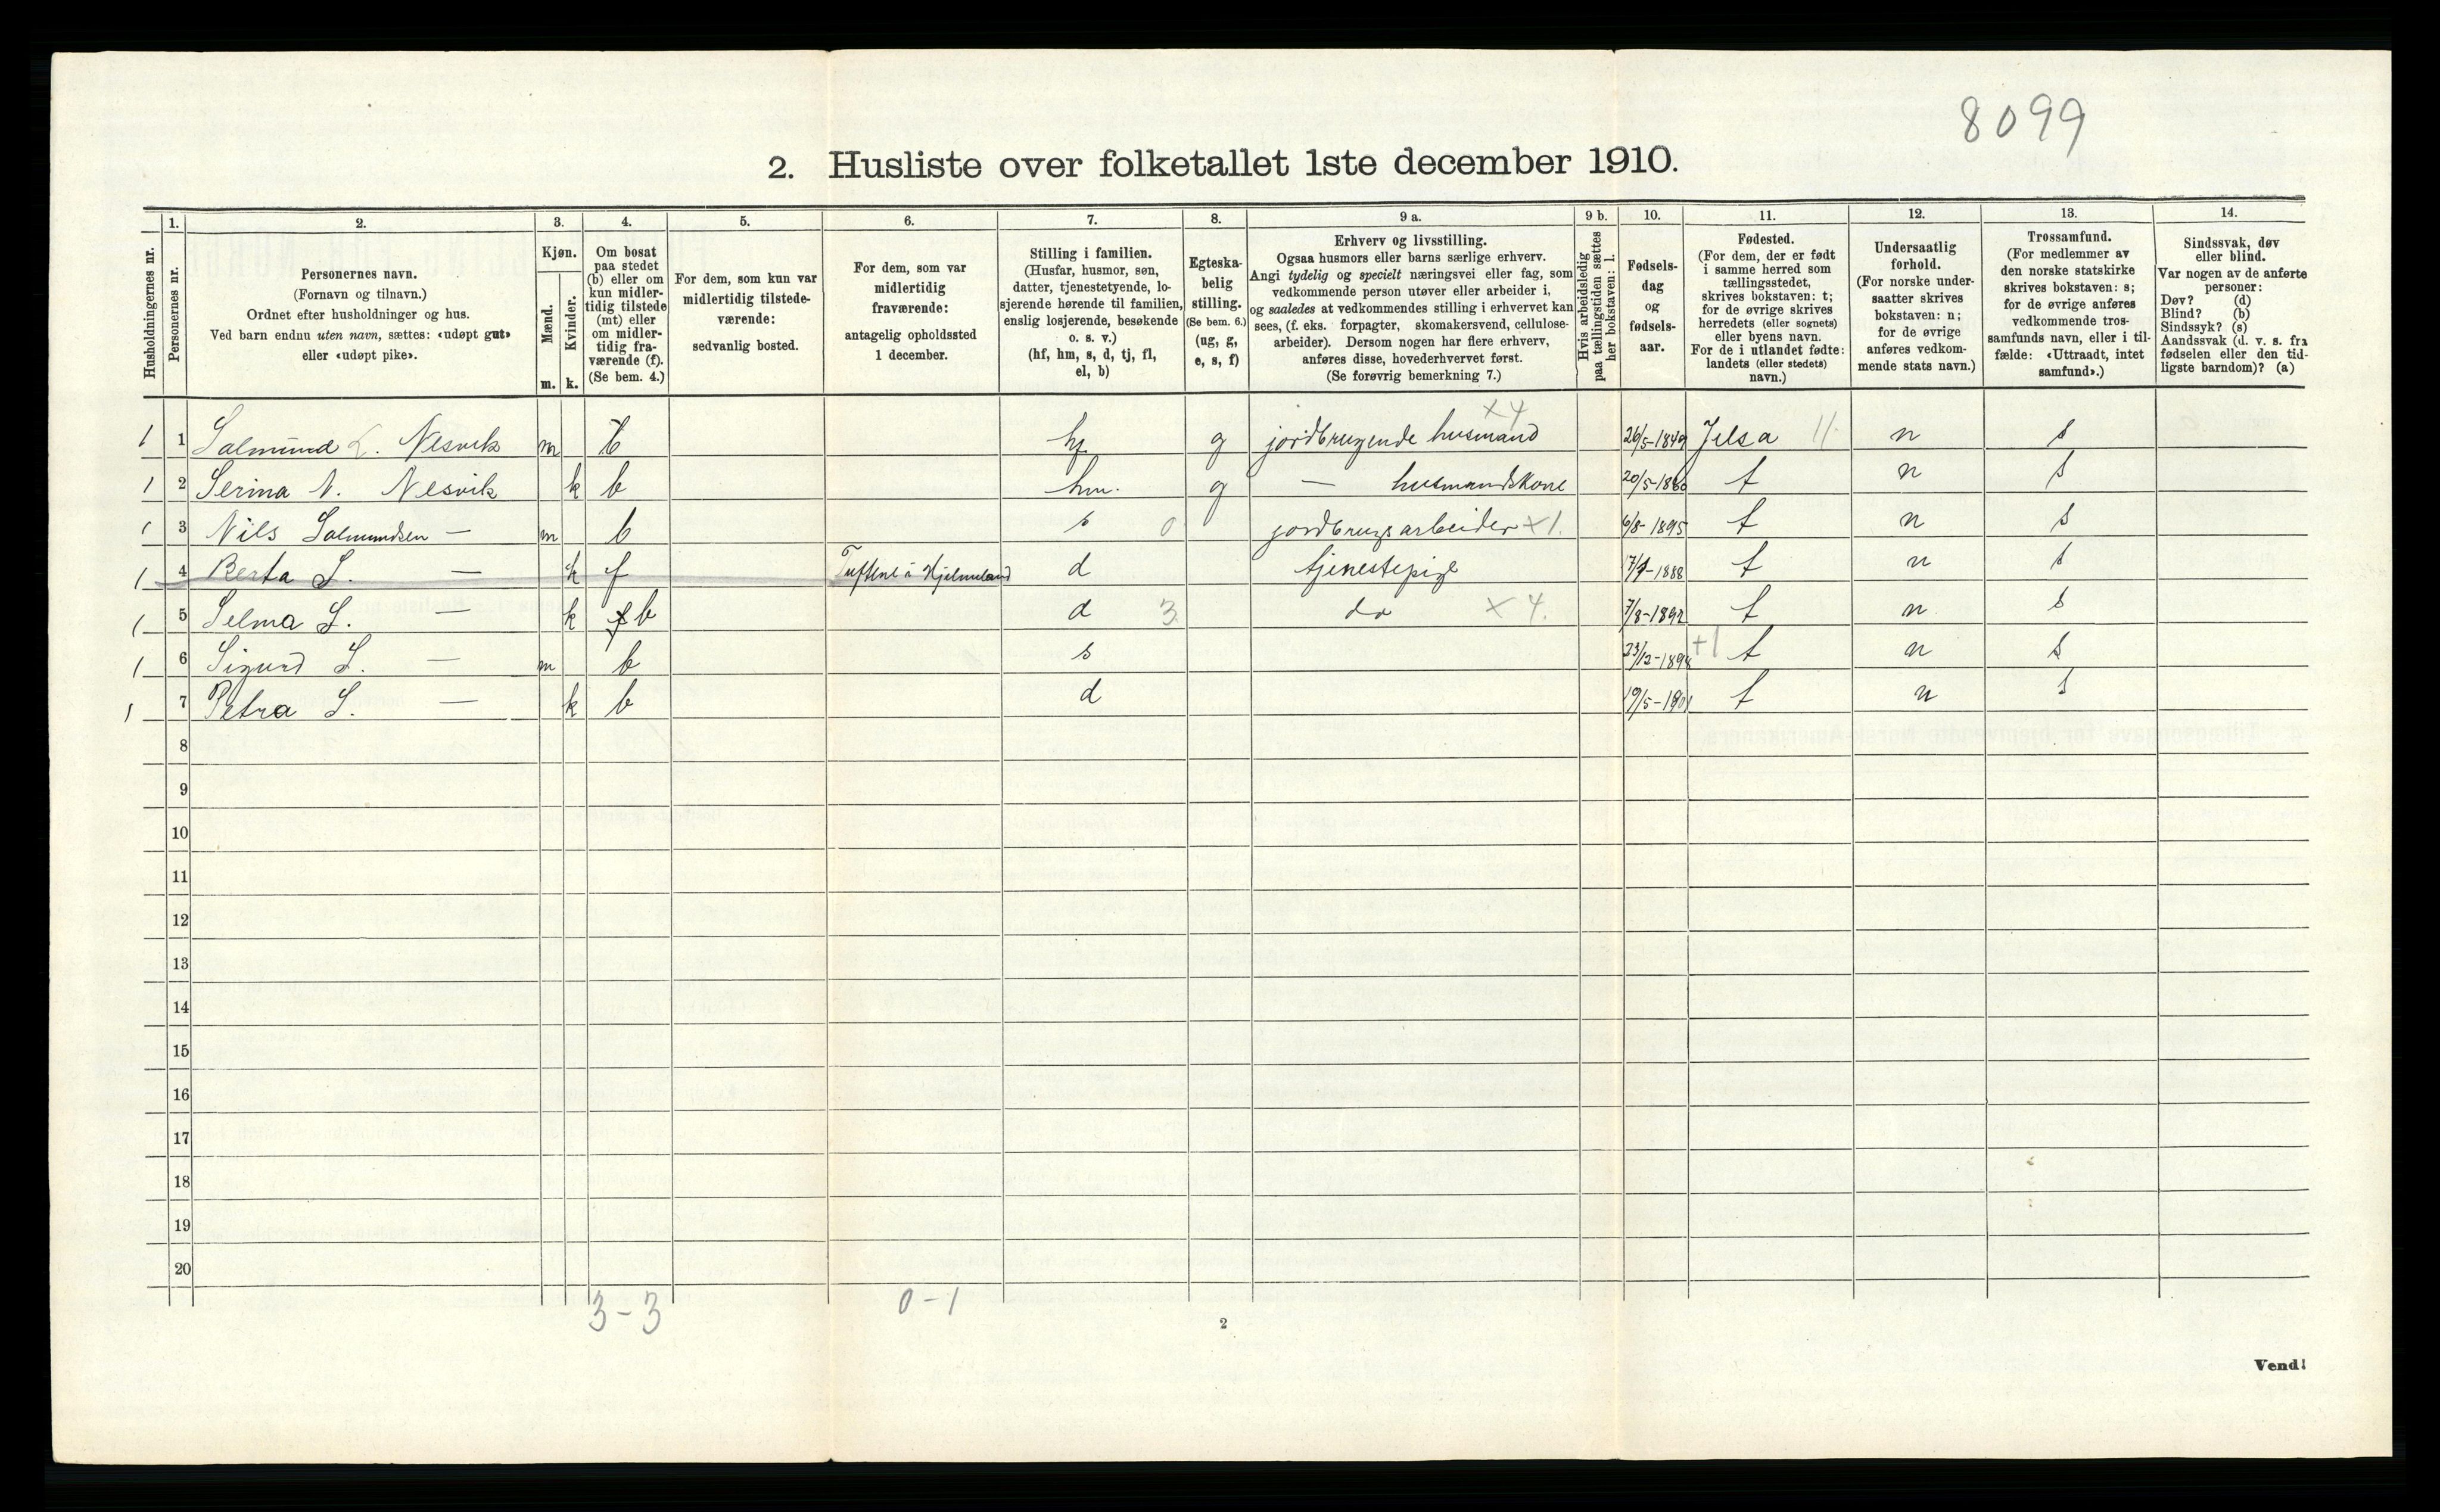 8099
2. Husliste over folketallet 1ste december 1910.
1. 2. 3. 4. 5. 6. 7. 8. 9 a. 9 b. 10. 11. 12. 13. 14.
Husholdningernes nr.
Personernes nr.
Personernes navn.
(Fornavn og tilnavn.)
Ordnet efter husholdninger og hus.
Ved barn endnu uten navn, sættes: «udøpt gut»
eller «udøpt pike».
Kjøn.
Mænd.
Kvinder.
m. k.
Om bosat
paa stedet
(b) eller om
kun midler-
tidig tilstede
(mt) eller
om midler-
tidig fra-
værende (f).
(Se bem. 4.)
For dem, som kun var
midlertidig tilstede-
værende:
sedvanlig bosted.
For dem, som var
midlertidig
fraværende:
antagelig opholdssted
1 december.
Stilling i familien.
(Husfar, husmor, søn,
datter, tjenestetyende, lo-
sjerende hørende til familien,
enslig losjerende, besøkende
o. s. v.)
(hf, hm, s, d, tj, fl,
el, b)
Egteska-
belig
stilling.
(Se bem. 6.)
(ug, g,
e, s, f)
Erhverv og livsstilling.
Ogsaa husmors eller barns særlige erhverv.
Angi tydelig og specielt næringsvei eller fag, som
vedkommende person utøver eller arbeider i,
og saaledes at vedkommendes stilling i erhvervet kan
sees, (f. eks. forpagter, skomakersvend, cellulose-
arbeider). Dersom nogen har flere erhverv,
anføres disse, hovederhvervet først.
(Se forøvrig bemerkning 7.)
Hvis arbeidsledig
paa tællingstiden sættes
her bokstaven: l.
Fødsels-
dag
og
fødsels-
aar.
Fødested.
(For dem, der er født
i samme herred som
tællingsstedet,
skrives bokstaven: t;
for de øvrige skrives
herredets (eller sognets)
eller byens navn.
For de i utlandet fødte:
landets (eller stedets)
navn.)
Undersaatlig
forhold.
(For norske under-
saatter skrives
bokstaven: n;
for de øvrige
anføres vedkom-
mende stats navn.)
Trossamfund.
(For medlemmer av
den norske statskirke
skrives bokstaven: s;
for de øvrige anføres
vedkommende tros-
samfunds navn, eller i til-
fælde: «Uttraadt, intet
samfund».)
Sindssvak, døv
eller blind.
Var nogen av de anførte
personer:
Døv? (d)
Blind? (b)
Sindssyk? (s)
Aandssvak (d. v. s. fra
fødselen eller den tid-
ligste barndom)? (a)
1 1 Salmund L. Nesvik m b hf g jordbrugende husmand x4 26/5-1849 Jelsa 11 n s
1 2 Serina N. Nesvik k b hm. g — husmandskone 20/5-1860 t n s
1 3 Nils Salmundsen — m b s 0 jordbrugsarbeider x1. 6/8-1895 t n s
1 4 Berta S. — k f Tuftene i Hjelmeland d tjenestepige t n s
1 5 Selma S. — k f b d 3 do x 4. t n s
1 6 Sigurd S. — m b s +1 t n s
1 7 Petra S. — k b d 19/5-1901 t n s
8
9
10
11
12
13
14
15
16
17
18
19
20
3-3 0-1
2
Vend!